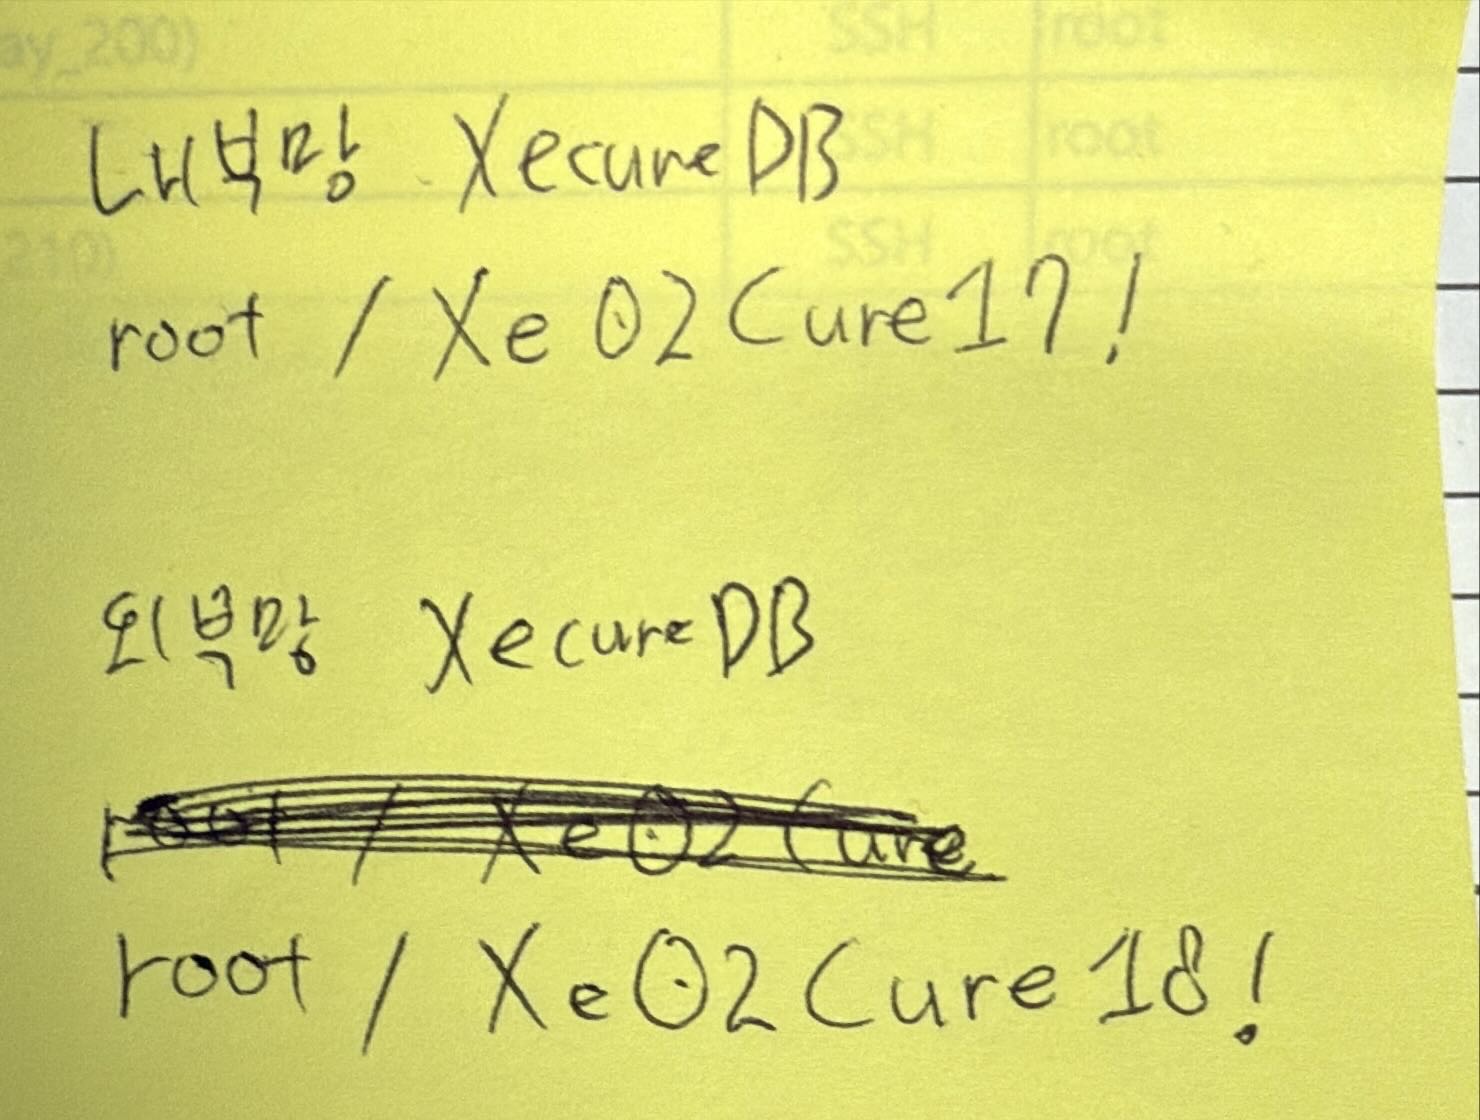 ay_200) SSH root
내부망 XecureDB
SSH root
root / Xe02Cure17!
210) SSH root
외부망 XecureDB
root / Xe02Cure
root / Xe02Cure18!